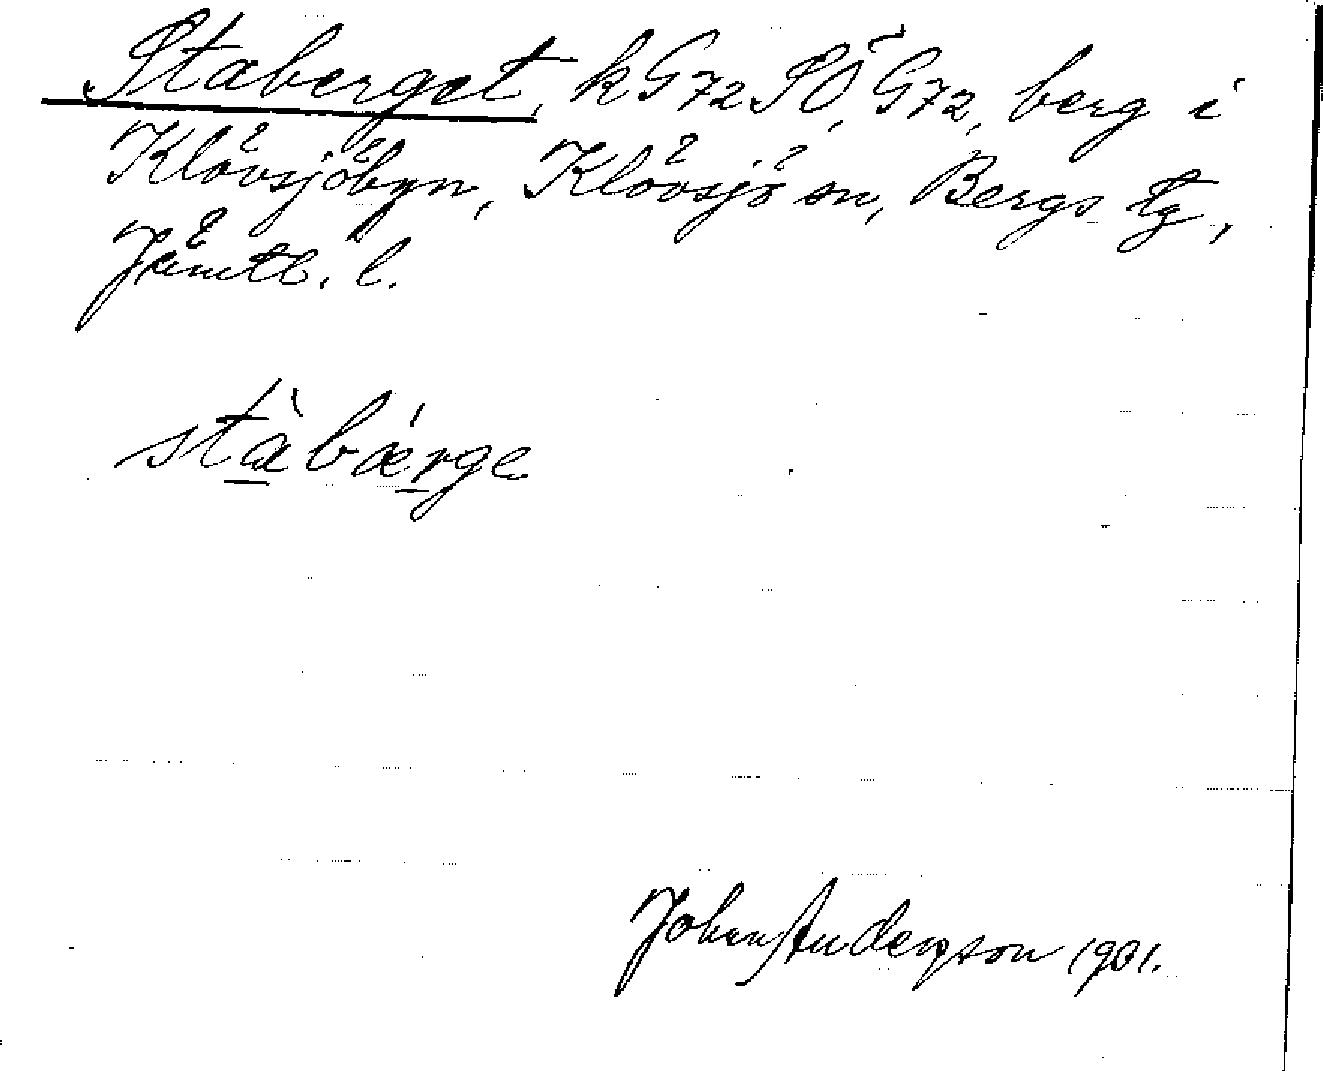 Staberget, k G72 SÖ, G72, berg i
Klövsjöbyn, Klövsjö sn, Bergs tg,
Jämtl. l.
stàbǽrge
Johan Anderson 1901.